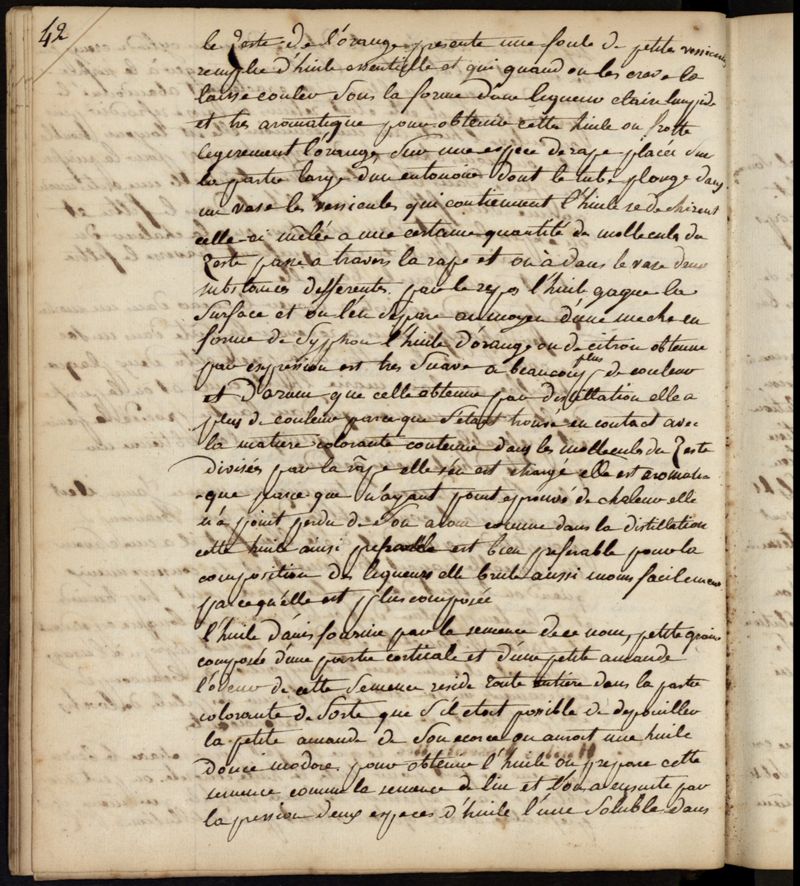 42
le Zeste de l'orange presente une foule de petite vessicules
remplie d'huile essentielle et qui quand on les creve la
laisse couler sous la forme d'une liqueur claire limpide
et tres aromatique pour obtenir cette huile on frotte
legerement l'orange sur une espece de rape placée sur
la partie large d'un entonoir dont le tube plonge dans
un vase les vessicules qui contiennent l'huile se dechirent
celle ci mêlée a une certaine quantité de mollecule du
Zeste passe a travers la rape et on a dans le vase deux
substances differentes. par le repos l'huile gagne la
surface et on l'en separe au moyen d'une meche en
forme de Syphon l'huile d'orange ou de citron obtenue
par expression est tres suave a beaucoup plus de couleur
et d'arome que celle obtenue par distillation elle a
plus de couleur parceque s'etant trouvé en contact avec
la matiere colorante contenue dans les mollecules du Zeste
divisés par la râpe elle s'en est chargé elle est aromati-
-que parce que n'ayant point eprouvé de chaleur elle
n'a point perdu de son arome comme dans la distillation
cette huile ainsi est bien preferable pour la
composition des liqueurs elle brule aussi moins facilement
parcequ'elle est plus composée
l'huile d'anis fournie par la semence de ce nom, petite graine
composée d'une partie corticale et d'une petite amande
l'odeur de cette semence reside toute entiere dans la partie
colorante de sorte que s'il etoit possible de depouiller
la petite amande de son ecorce on auroit une huile
douce inodore. pour obtenir l'huile on prepare cette
semence comme la semence de lin et l'on a ensuite par
la pression deux especes d'huile l'une soluble dans